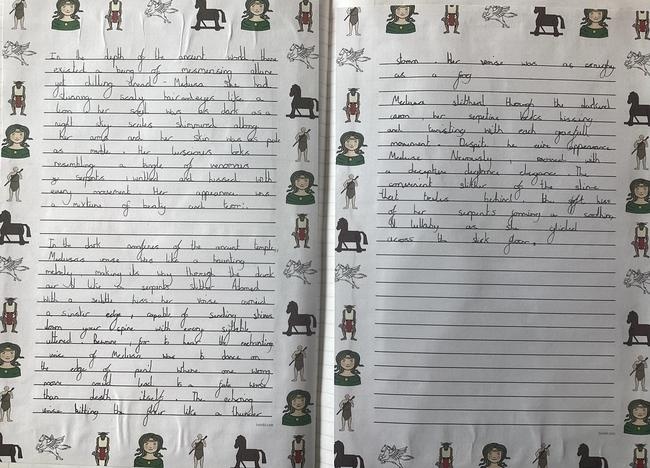 In the depth of the ancient world there
existed a being of mesmerising allure
and chilling dread. Medusa she had
stunning scaly hair and eyes like a
lion her soul was as dark as a
night sky scales shimmered along
her arms and her skin was as pale
as marble. Her luscious locks
resembling a tangle of venomous
serpents writhed and hissed with
every movement Her appearance was
a mixture of beauty and terror.
In the dark confines of the ancient temple,
Medusas voice was like a haunting
melody, making its way through the dark
air like a serpents slither Adorned
with a subtle hiss her voice carried
a sinister edge, capable of sending shivers
down your spine with every syllable
uttered Beware, for to hear the enchanting
voice of Medusa was to dance on
the edge of peril where one wrong
move could lead to a fate worse
than death itself. The echoing
voice hitting the floor like a thunder
storm Her voice was as croaky
as a frog
Medusa slithered through the darkend
cavern her serpentine locks hissing
and twisting with each graceful
movement. Despite her calm appearance
Medusa moved with
a deceptive elegance The
slither of the slime
that trades behind the soft hiss
of her serpents forming a soothing
lullaby as she glided
across the dark floor.
twinkl.com
twinkl.com